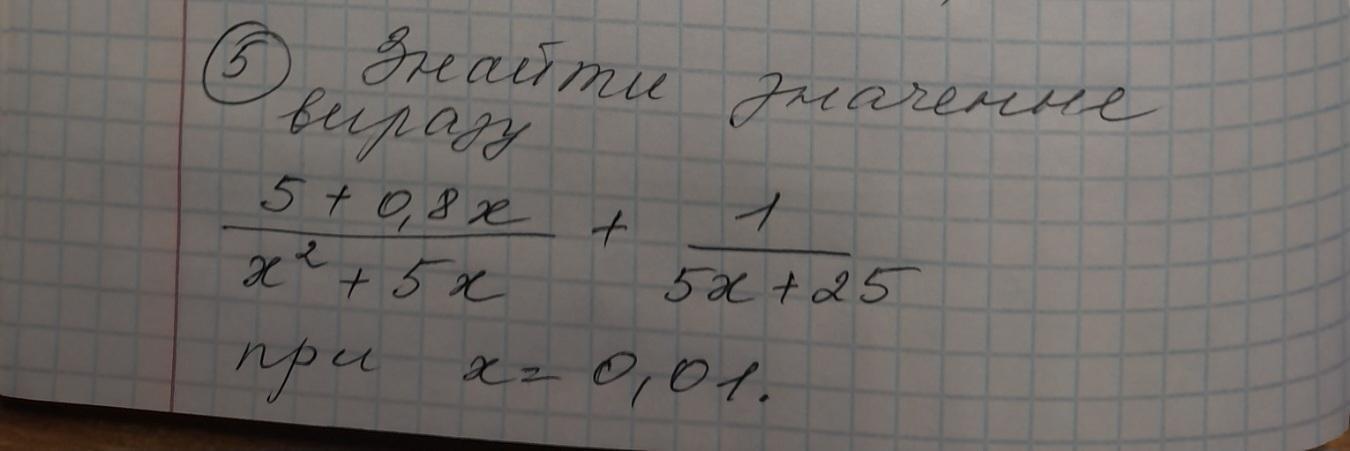 ⑤ Знайти значення
виразу
5 + 0,8x / x² + 5x + 1 / 5x + 25
при x = 0,01.